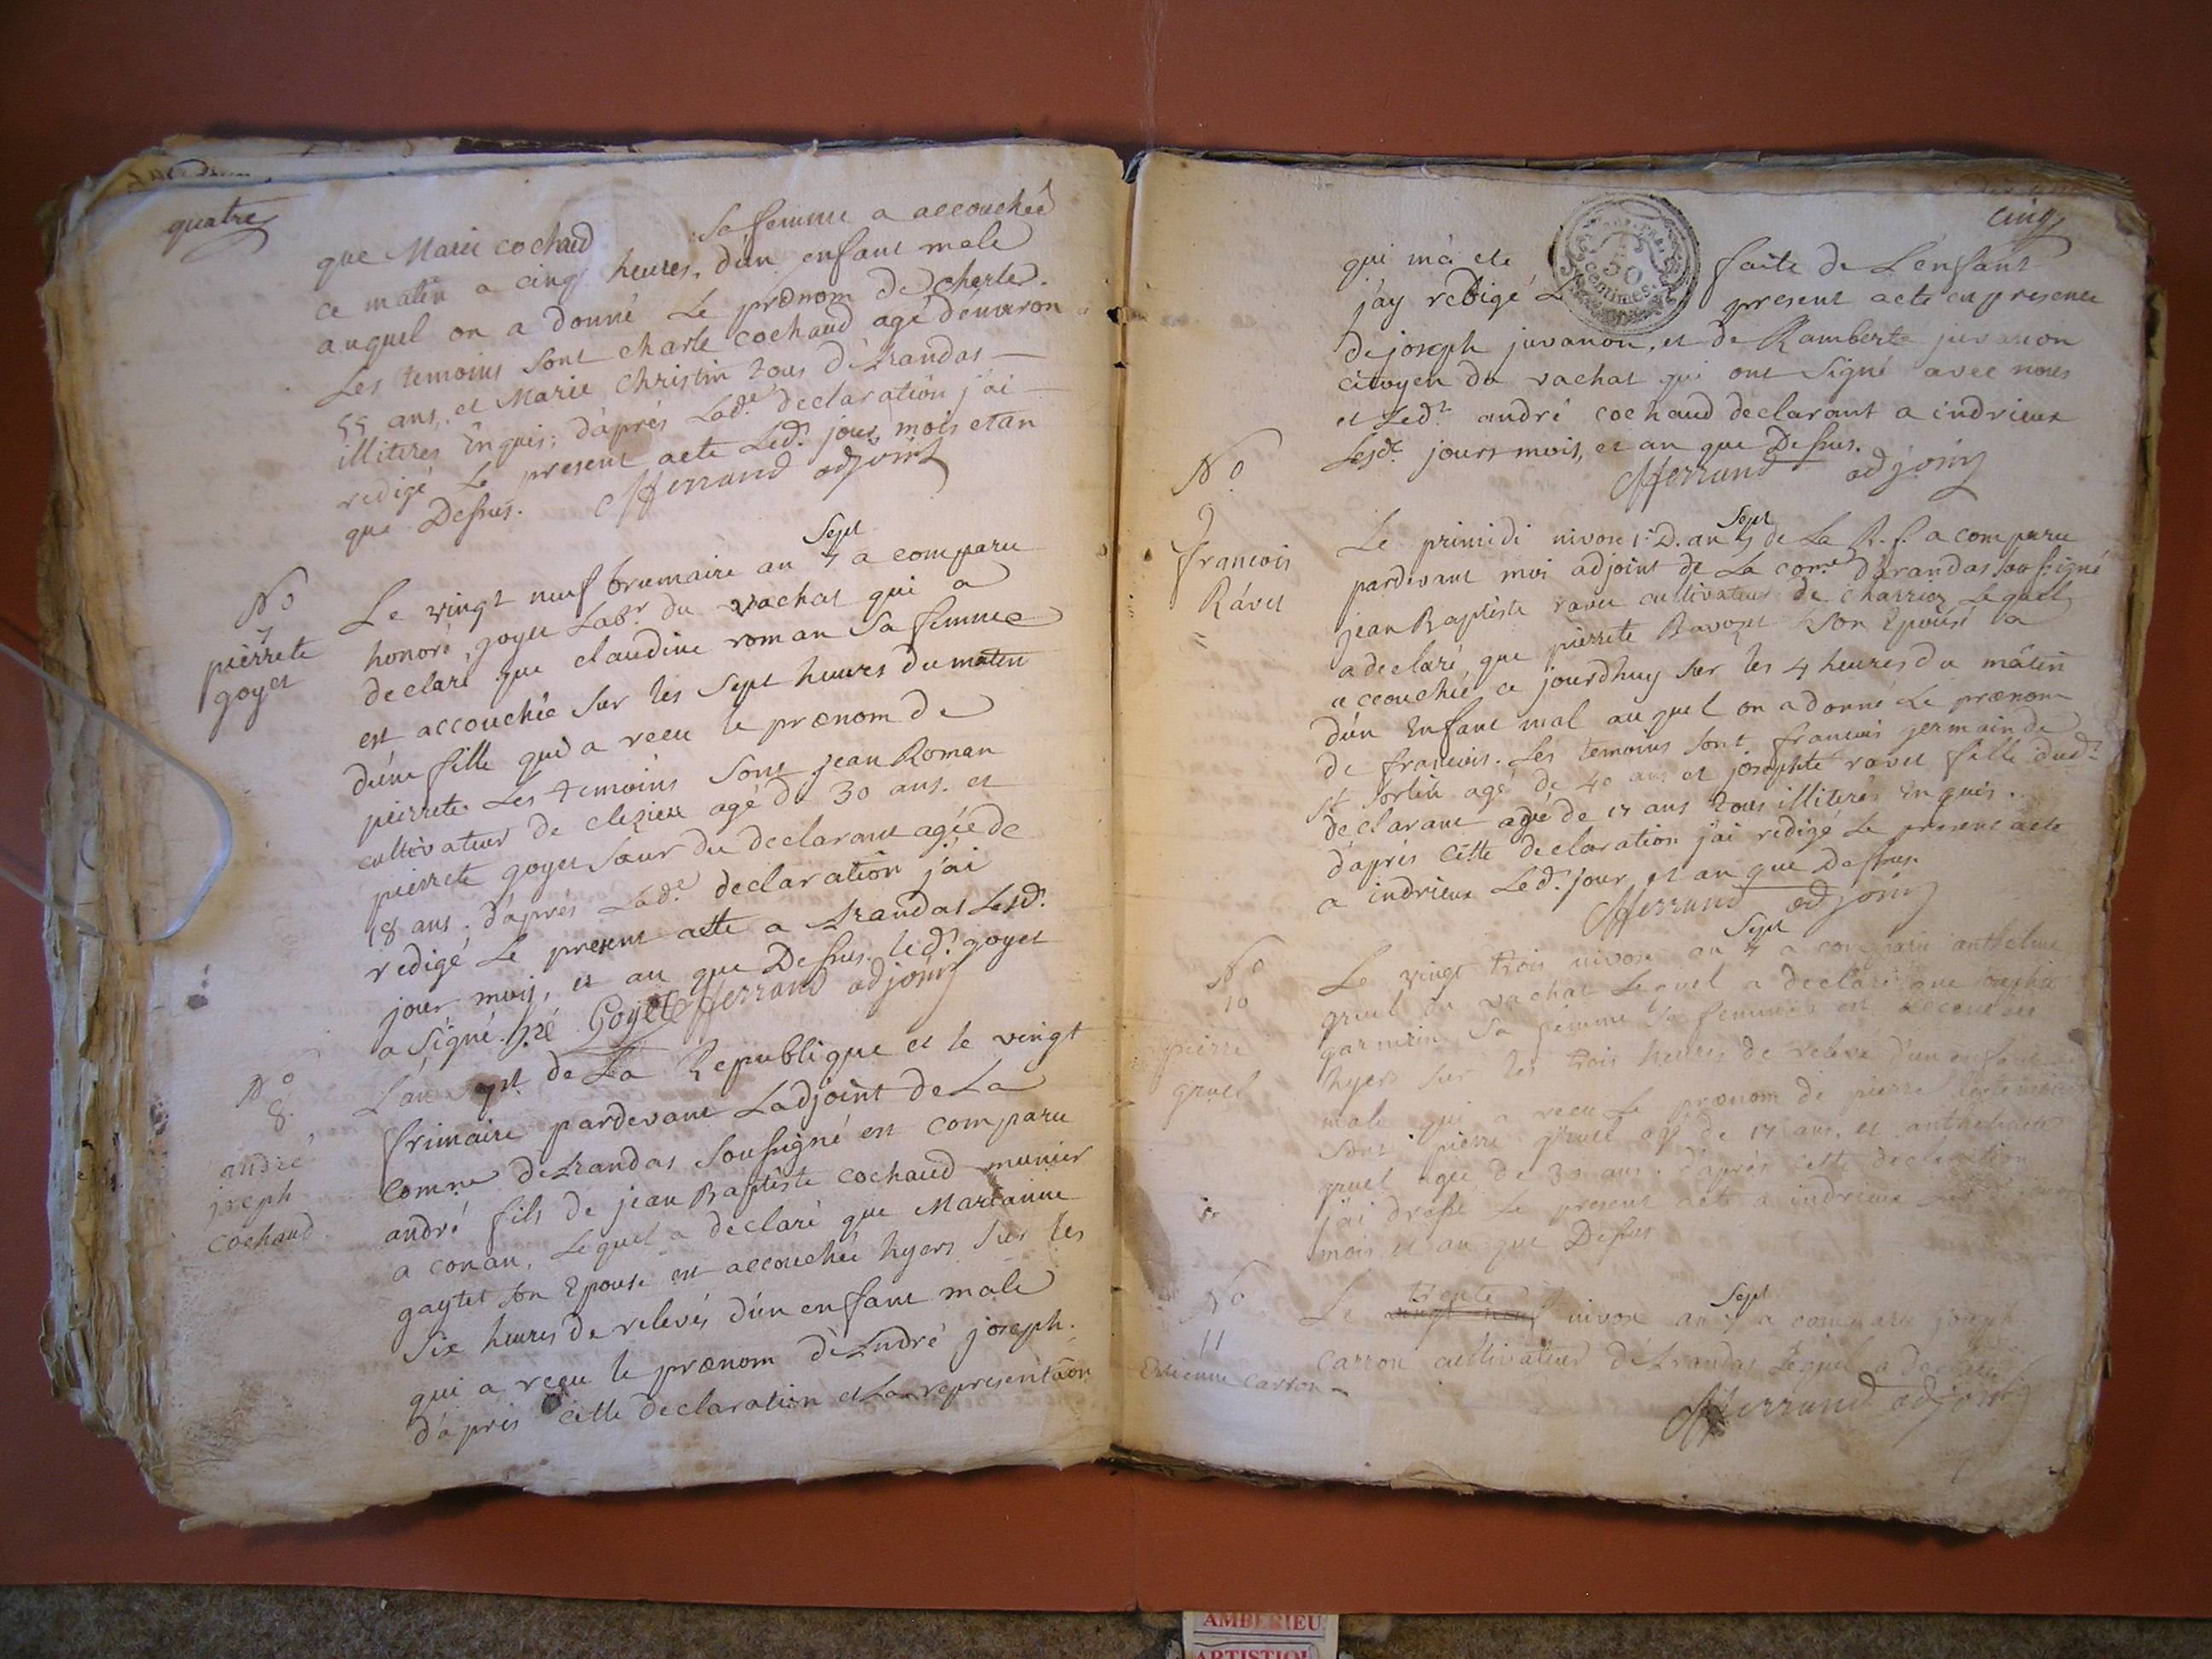 quatre
que Marie cochaud sa femme a accouchée
ce matin a cinq heures, d'un enfant male
auquel on a donné Le prœnom de cherle.
Les temoins sont charle cochaud agé d'environ
55 ans, et Marie Christin tous d'Arandas
illiterés Enquis; d'aprés Lade. declaration j'ai
redigé Le present acte Led. jour, mois et an
que Dessus. Ferrand adjoint
No
7
pierrete
goyet
Sept
Le vingt neuf brumaire an 7 a comparu
honoré, goyet Labr. du vachat qui a
declaré que claudine roman sa femme
est accouchée sur les sept heures du matin
d'une fille qui a recu le prœnom de
pierrete. Les temoins sont jean Roman
cultivateur de clezieu agé de 30 ans. et
pierrete goyet sœur du declarant agée de
18 ans. d'aprés Lade. declaration j'ai
redigé Le present acte a Arandas Lesd.
jour mois, et an que Dessus. led. goyet
a signé. Goyet Ferrand adjoint
No
8.
andré
joseph
cochaud
L'an 7e. de La Republique et le vingt
frimaire pardevant Ladjoint de La
comne d'Arandas soussigné est comparu
andré fils de jean Baptiste cochaud munier
a conan, Lequel a declaré que Marianne
gaytet son Epouse est accouchée hyers sur les
six heures de relevés d'un enfant male
qui a recu le prœnom d'André joseph.
d'aprés cette declaration et La representaõn
cinq
50
centimes
qui m'a ete faite de L'enfant
j'ay redigé Le present acte en presence
de joseph juvanon, et de Ramberte juvanon
citoyen du vachat qui ont signé avec nous
et Led. andré cochaud declarant a indrieux
Lesd. jours mois, et an que Dessus.
Ferrand adjoint
No
9
francois
Rávet
=
Sept
Le primidi nivose 1e. D. an 7 de La R. f. a comparu
pardevant moi adjoint de La come d'arandas soussigné
jean Baptiste ravet cultivateur de charriez Lequel
a declaré, que pierrete Bavozet son Epouse a
accouchée ce jourdhuy sur les 4 heures du mâtin
d'un Enfant mal auquel on a donné Le prœnom
de francois. Les temoins sont francois germain de
st sorlin agé de 40 ans et josephte ravet fille dud.
declarant agée de 17 ans tous illiterés Enquis.
d'aprés cette declaration j'ai redigé Le present acte
a indrieux Led. jour, et an que Dessus.
Ferrand adjoint
No
10
pierre
gruel
Sept
Le vingt trois nivose an 7 a comparu anthelme
gruel du vachat Lequel a declaré que
garmain sa femme sa femme est accouchée
hyers sur les trois heures de relevé d'un enfant
male qui a recu Le prœnom de pierre les temoins
sont pierre gruel agé de 17 ans. et anthelmete
gruel agée de 30 ans. d'aprés cette declaration
j'ai dressé Le present acte a indrieux
mois et an que Dessus
No
11
Etienne Carron
trente Sept
Le vingt neuf nivose an 7 a comparu joseph
carron cultivateur d'Arandas Lequel a declaré
Ferrand adjoint
AMBERIEU